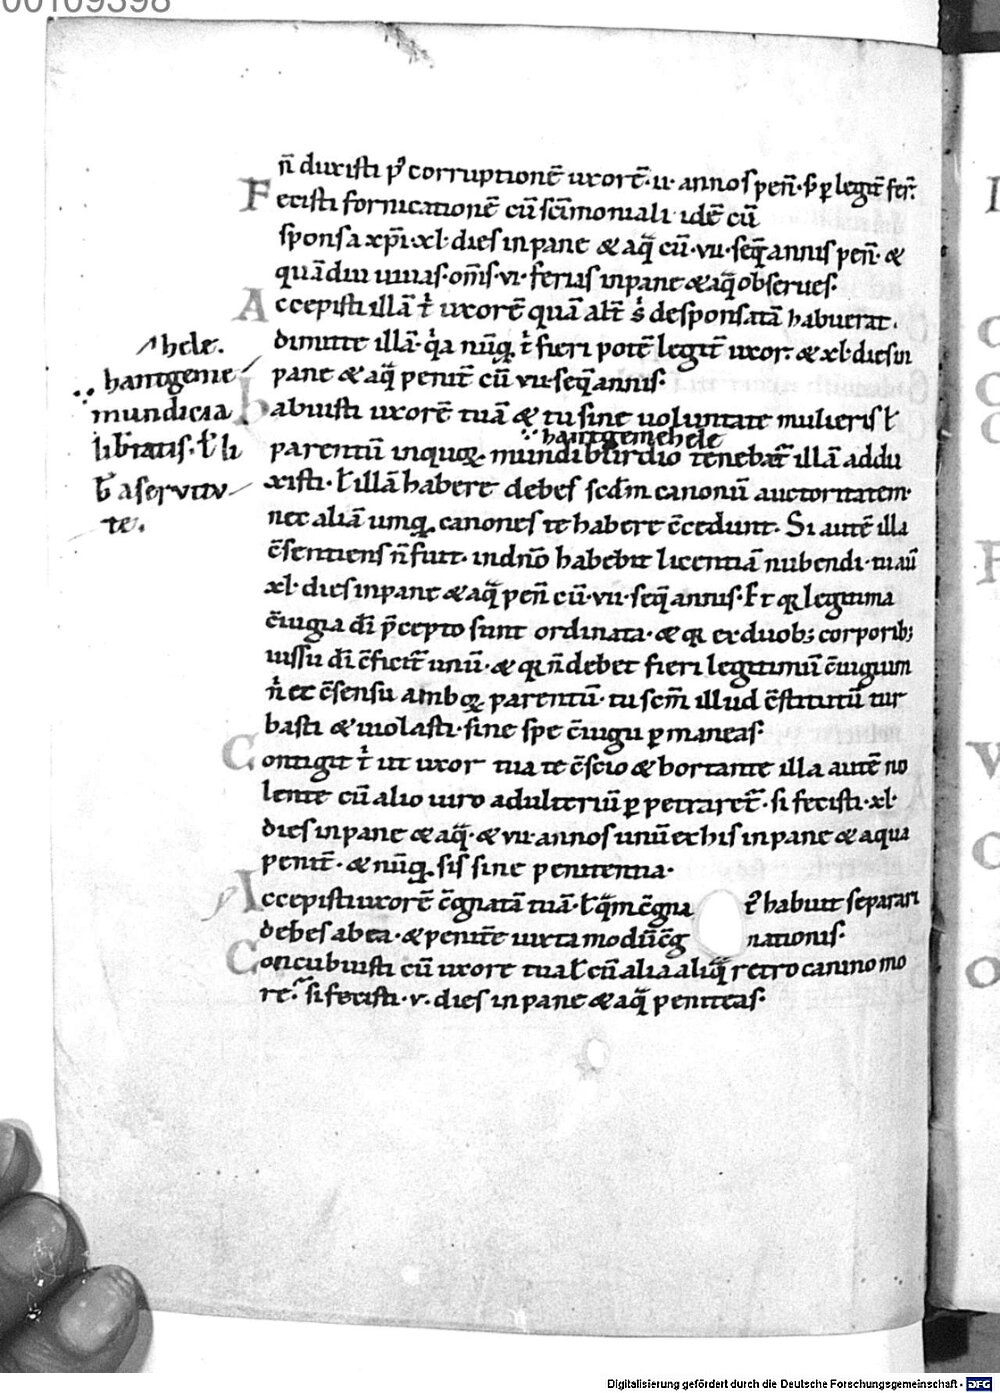 00109398
n̄ duxisti p᷒ corruptionē uxorē· ii· annos pen̄· p̄ p̱ legit̄ fer̄·
Fecisti fornicationē cū sc̄imoniali idē cū
sponsa xp̄i· xl· dies in pane & aq̄ cū· vii· seq̄ annis pen̄· &
quādiu uiuas· om̄s· vi· ferias in pane & aq̄ obserues·
Accepisti illā ł uxorē quā alt̄ s᷒ desponsatā habuerat·
dimitte illā· q̇a nūq̱ ł fieri potē legit̄ uxor· & xl· dies in
pane & aq̄ penit̄ cū vii· seq̄ annis·
habuisti uxorē tuā & tu sine uoluntate mulieris ł
hantgemehele
parentū inquoꝝ mundiburdio tenebat᷒ illā addu
xisti· ł illā habere debes scd̄m canonū auctoritatem·
nec aliā umq̱ canones te habere c̄cedunt· Si autē illa
c̄sentiens n̄ fuit· in dn̄o habebit licentiā nubendi· tu aū
xl· dies in pane & aq̄ pen̄ cū· vii· seq̄ annis· Et qꝛ legitima
c̄iugia dī p̄cepto sunt ordinata· & qꝛ ex duob; corporib;
iussu dī c̄ficit᷒ unū· & qꝛ n̄ debet fieri legitimū c̄iugium
n᷒ ex c̄sensu amboꝝ parentū· tu sem̄ illud c̄stitutū tur
basti & uiolasti· sine spe c̄iugii p̱maneas·
Contigit ł ut uxor tua te c̄scio & hortante illa autē no
lente cū alio uiro adulteriū p̱petraret᷒· si fecisti· xl·
dies in pane & aq̄· & vii· annos unū ex his in pane & aqua
penit̄· & nūq̱ sis sine penitentia·
Accepisti uxorē c̄gnatā tuā· ł q̄m c̄gna t᷒ habuit separari
debes ab ea· & penitē iuxta modū c̄g nationis·
Concubuisti cū uxore tua ł cū alia aliq̄ retro canino mo
re· si fecisti· v· dies in pane & aq̄ peniteas·
hele·
hantgeme
mundicia
lib̄tatis· ł li
b̄ a seruitu
te·
Digitalisierung gefördert durch die Deutsche Forschungsgemeinschaft - DFG